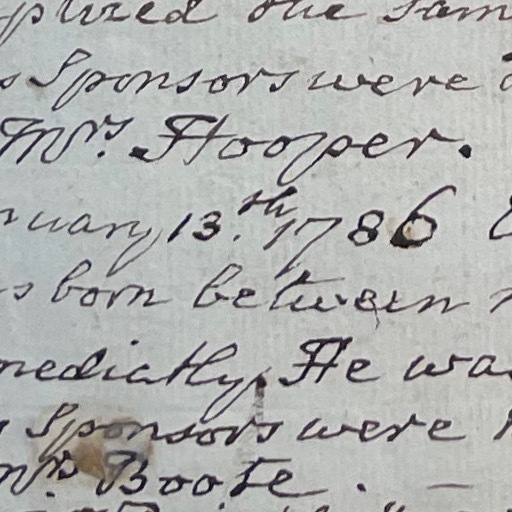 the same
s Sponsors were
Mrs. Hooper.
nuary 13.th 1786
s born between
mediatly, He was
s Sponsors were
Mrs. Boote. —